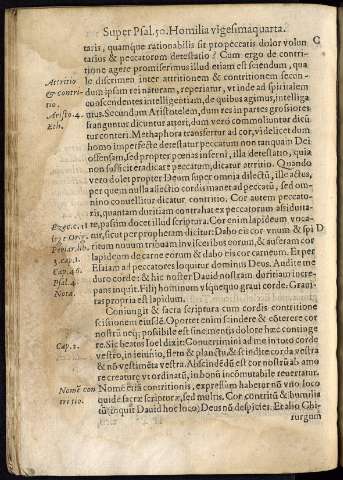 Super Psal. 50. Homilia vigesimaquarta.
taris, quamque rationabilis sit pro peccatis dolor volun C
tarius & peccatorum detestatio? Cum ergo de contri-
tione agere promiserimus illud etiam est sciendum, qua
Attritio
& contri-
tio.
le discrimen inter attritionem & contritionem secun-
dum ipsam rei naturam, reperiatur, vt inde ad spiritalem
conscendentes intelligentiam, de quibus agimus, intelliga
Aristo. 4.
Eth.
tur. Secundum Aristotelem, dum res in partes grossiores
franguntur dicuntur atteri, dum vero comminuuntur dicū
tur conteri. Methaphora transfertur ad cor, videlicet dum
homo imperfecte detestatur peccatum non tanquam Dei
offensam, sed propter pœnas inferni, illa detestatio, quia
non sufficit eradicare peccatum, dicatur attritio. Quando
vero dolet propter Deum super omnia dilectū, ille actus,
per quem nulla affectio cordis manet ad peccatū, sed om-
nino convellitur dicatur contritio. Cor autem peccato-
ris, quantam duritiam contrahat ex peccatorum assiduita-
te, passim docet illud scriptura. Cor enim lapideum voca-
tur, sicut per prophetam dicitur: Dabo eis cor vnum & spi D
ritum nouum tribuam in visceribus eorum, & auferam cor
3. cap. 1.
lapideum de carne eorum & dabo eis cor carneum. Et per
Cap. 46.
Esaiam ad peccatores loquitur dominus Deus. Audite me
Psal. 4.
duro corde: & hic noster Dauid nostram duritiam incre-
Nota.
pans inquit. Filij hominum vsquequo graui corde. Graui-
tas propria est lapidum.
Coniungit & sacra scriptura cum cordis contritione
scissionem eiusdē. Oportet enim scindere & cōterere cor
nostrū neq; possibile est sine mentis dolore hæc continge
Cap. 2.
re. Sic beatus Ioel dixit: Conuertimini ad me in toto corde
vestro, in ieiunio, fletu & planctu, & scindite corda vestra
& nō vestimēta vestra. Abscindēdū est cor nostrū ab amo
re creaturæ vt ordinatū, in bonū incōmutabile reuertatur.
Nomē con
tritio.
Nomē etiā contritionis, expressum habetur nū vno loco
quidē sacræ scripturæ, sed multis. Cor contritū & humilia
tū (inquit Dauid hoc loco) Deus nō despicies. Et alio Chi-
rurgum